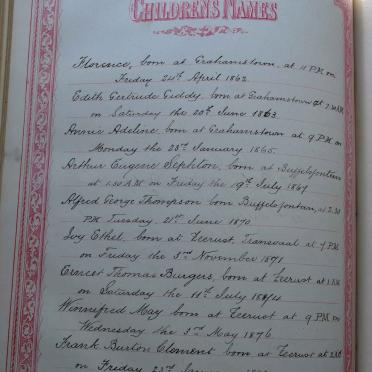 CHILDRENS NAMES
Florence, born at Grahamstown, at 11 P.M. on
Friday 24th April 1862.
Edith Gertrude Giddy, born at Grahamstown at 7.30 AM
on Saturday the 20th June 1863
Annie Adeline, born at Grahamstown at 9 P.M. on
Monday the 23rd January 1865.
Arthur Eugene Sephton, born at Buffelsfontein
at 1.30 A.M. on Friday the 19th July 1867
Alfred George Thompson born Buffelsfontein, at 2.30
P.M. Tuesday, 21st June 1870.
Ivy Ethel, born at Zeerust, Transvaal at 7 P.M.
on Friday the 3rd November 1871
Ernest Thomas Burgers, born at Zeerust at 1 A.M.
on Saturday the 11th July 1874
Winnefred May born at Zeerust at 9 P.M. on
Wednesday the 3rd May 1876
Frank Burton Clement born at Zeerust at
on Friday 25th January